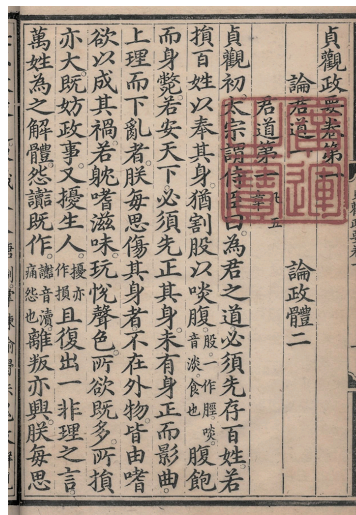 貞觀政要卷第一
論君道　論政體二
君道第一凡五章
貞觀初太宗謂侍臣曰為君之道必須先存百姓若
損百姓以奉其身猶割股以啖腹股一作脛啖音淡食也腹飽
而身斃若安天下必須先正其身未有身正而影曲
上理而下亂者朕每思傷其身者不在外物皆由嗜
欲以成其禍若躭嗜滋味玩悅聲色所欲既多所損
亦大既妨政事又擾生人擾亦作損且復出一非理之言
萬姓為之解體怨讟既作讟音瀆痛怨也離叛亦興朕每思